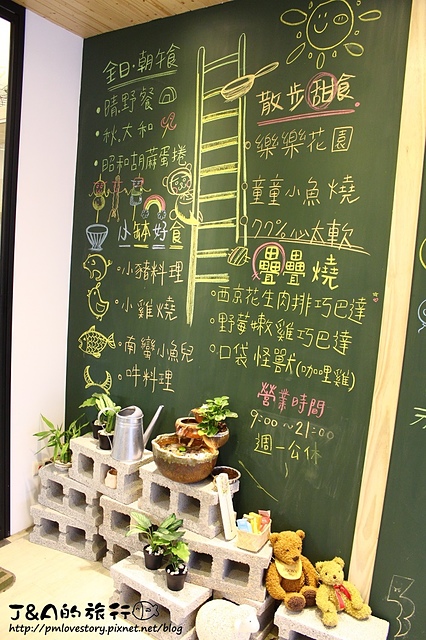 全日・朝午食
・晴野餐
・秋.大和
・昭和胡蔴蛋捲
小缽好食
・小豬料理
・小雞燒
・南蠻小魚兒
・吽料理
散步甜食
・樂樂花園
・童童小魚燒
・77%心太軟
疊疊燒
・西京花生肉排巧巴達
・野莓嫩雞巧巴達
・口袋怪獸(咖哩雞)
營業時間
9:00~21:00
週一公休
J&A的旅行
http://pmlovestory.pixnet.net/blog